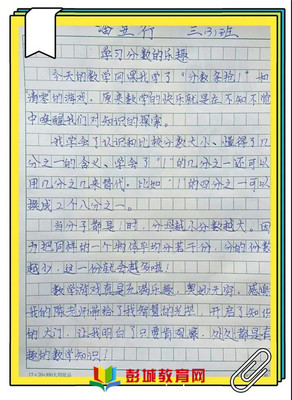 三(3)班
学习分数的乐趣
今天的数学网课我学了“分数争抢！如
清零的游戏，原来数学的快乐就是在不知不觉
中唤醒我们对知识的探索。
我学会了认识和比较分数大小、懂得了几
分之一的含义、学会了“1”的几分之一还可以
用几分之几来替代，比如“1”的四分之一可以
换成2个八分之一。
当分子都是1时，分母越小分数越大。因
为把同样的一个物体平均分若干份，分的份数
越少，这一份就会越多啦！
数学游戏真是充满乐趣，奥妙无穷。感谢
我的陈老师带给了我智慧的光芒，开启了知识
的大门，让我明白了只要肯观察，处处都是有
趣的数学知识！
彭城教育网